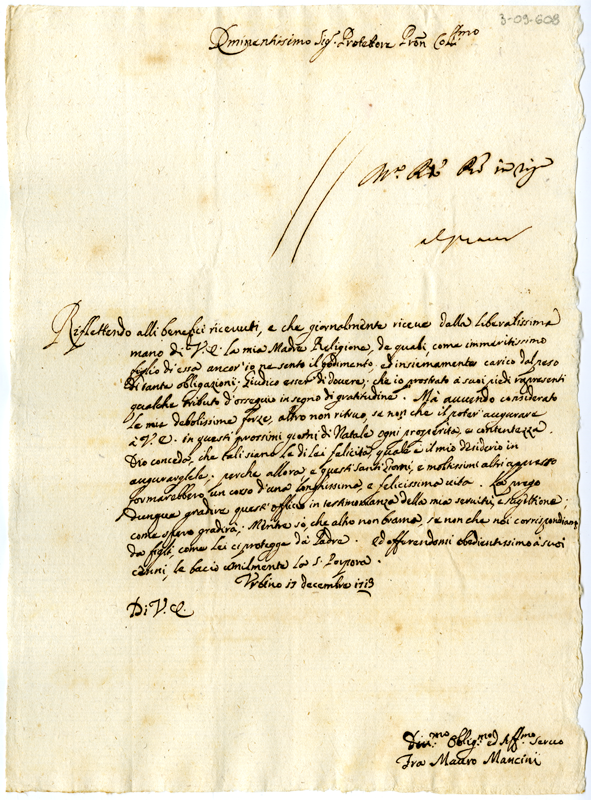 3-09-608
Eminentissimo Sig.r Protettore Pron Coll.mo
Riflettendo alli beneficj ricevuti, e che giornalmente riceve dalla liberalissima
mano di V.E. la mia Madre Religione, de quali, come immeritissimo
figlio di essa ancor' io ne sento il godimento, ed insiemamente carico dal peso
di tante obligazioni, Giudico esser di dovere, che io prostrato à suoi piedi rapresenti
qualche tributo d'ossequio in segno di gratitudine. Mà avvendo considerato
le mie debolissime forze, altro non ritruo, se non che il poter' augurare
à V.E. in questi prossimi giorni di Natale ogni prosperità, e contentezza.
Dio conceda, che tali siano le di lei felicità, quale è il mio desiderio in
augurargliele, perche allora e questi santi Giorni, e moltissimi altri appresso
formarebbero un corso d'una longhissima, e felicissima vita. La prego
dunque gradire quest' officio in testimonianza della mia servitù, e
come spero gradirà. Mentre sò, che altro non brama, se non che noi corrispondiamo
da figli, come lei ci protegge da Padre. Ed offerendomi obedientissimo à suoi
cenni, le bacio umilmente la S. Porpora.
Urbino 17 decembre 1713
Di V.E.
Div.mo Oblig.mo ed Aff.mo Servo
Fra Mauro Mancini